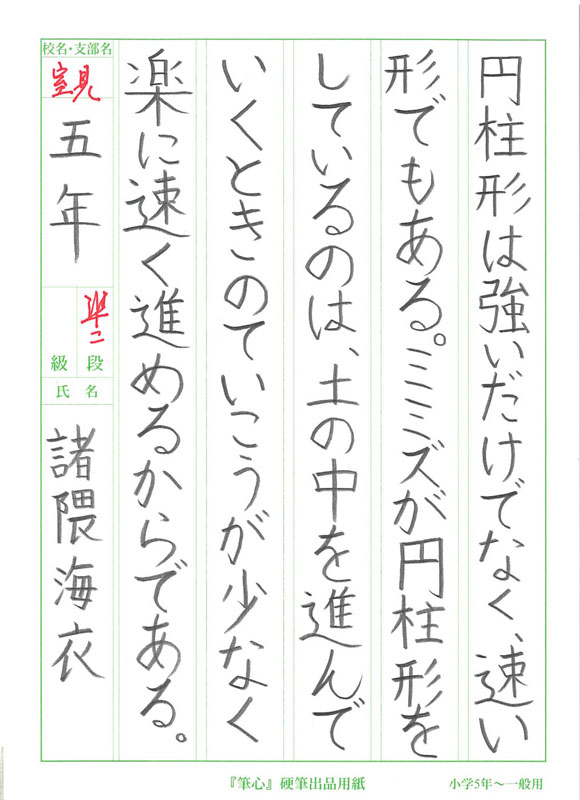 円柱形は強いだけでなく、速い
形でもある。ミミズが円柱形を
しているのは、土の中を進んで
いくときのていこうが少なく
楽に速く進めるからである。
校名・支部名
室見
五年
準二
段
級
氏名
諸隈海衣
『筆心』硬筆出品用紙
小学5年〜一般用